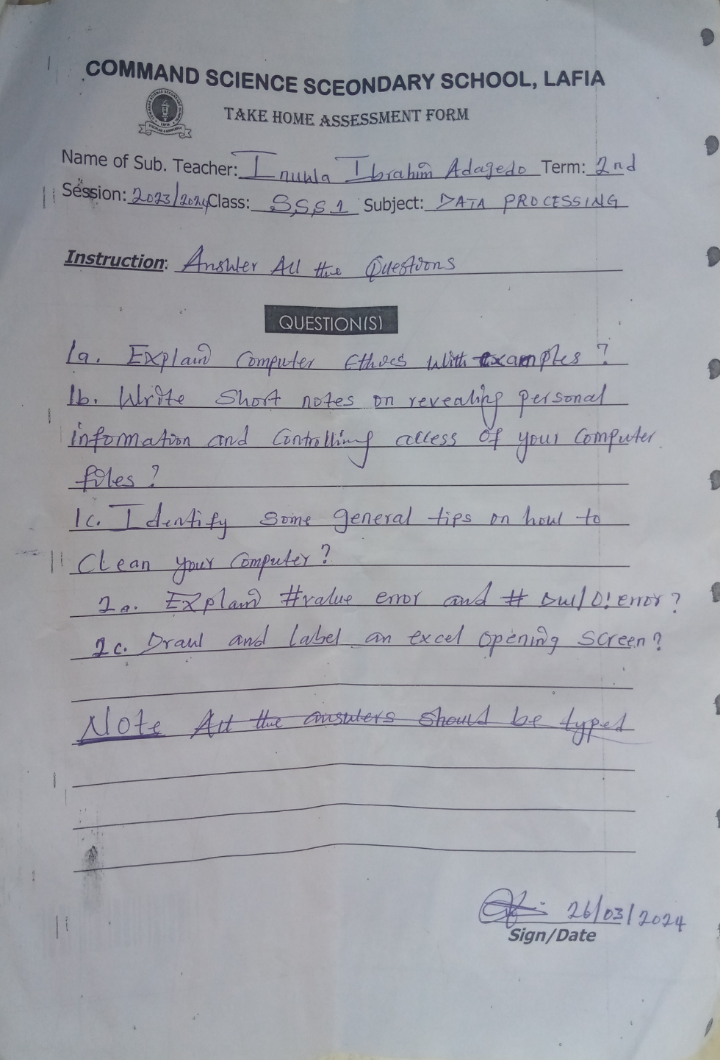 COMMAND SCIENCE SCEONDARY SCHOOL, LAFIA
TAKE HOME ASSESSMENT FORM
Name of Sub. Teacher: Inuwa Ibrahim Adagedo Term: 2nd
Session: 2023/2024 Class: S.S.S 1 Subject: DATA PROCESSING
Instruction: Answer All the Questions
QUESTION(S)
1a. Explain Computer Ethics with examples?
1b. Write short notes on revealing personal
information and Controlling access of your Computer
files?
1c. Identify some general tips on how to
Clean your Computer?
2a. Explain #value error and # DIV/0! Error?
2c. Draw and Label an excel opening screen?
Note All the answers should be typed
26/03/2024
Sign/Date